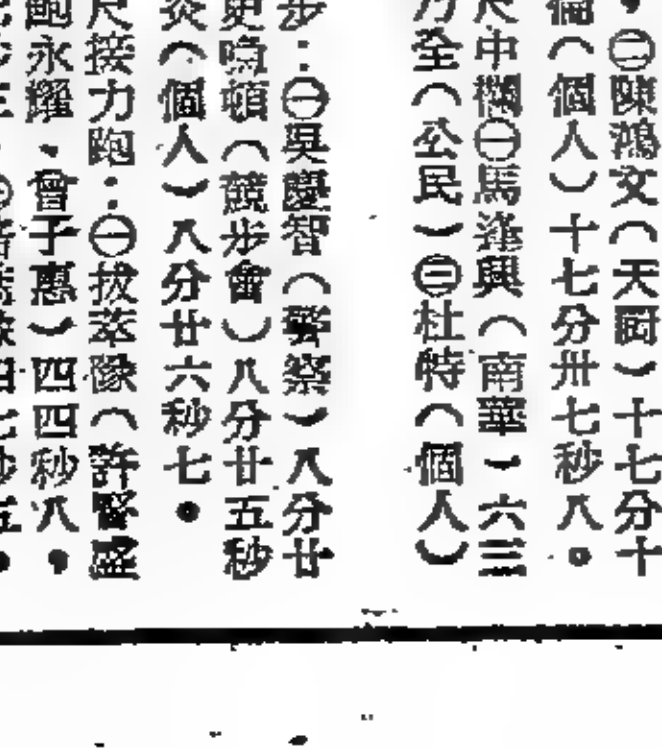 ㊁陳鴻文（天厨）十七分十
（個人）十七分卅七秒八。
中欄㊀馬逢興（南華）六三
全（公民）㊂杜特（個人）
步：㊀吳慶智（警察）八分廿
頓（競步會）八分廿五秒
（個人）八分廿六秒七。
尺接力跑：㊀拔萃隊（許賢盛
鮑永耀，曾子惠）四四秒八，